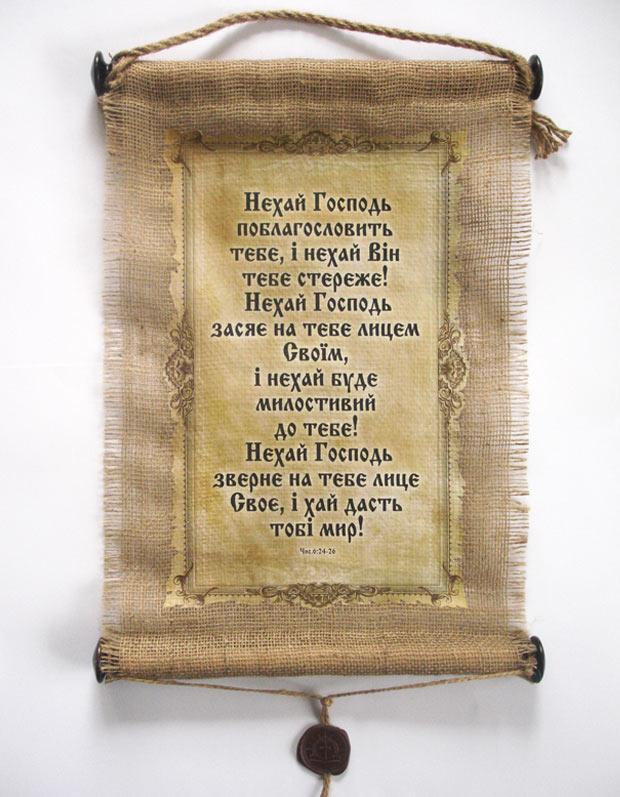 Нехай Господь
поблагословить
тебе, і нехай Він
тебе стереже!
Нехай Господь
засяє на тебе лицем
Своїм,
і нехай буде
милостивий
до тебе!
Нехай Господь
зверне на тебе лице
Своє, і хай дасть
тобі мир!
Чис.6:24-26